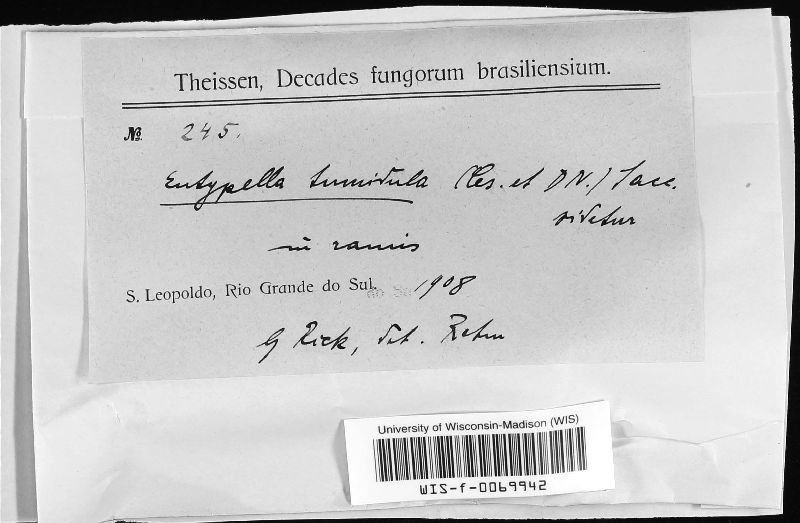 Theissen, Decades fungorum brasiliensium.
№ 245.
Eutypella tumidula (Ces. et D N.) Sacc.
videtur
in ramis
S. Leopoldo, Rio Grande do Sul. 1908
Rick, det. Rehm
University of Wisconsin-Madison (WIS)
WIS-f-0069942